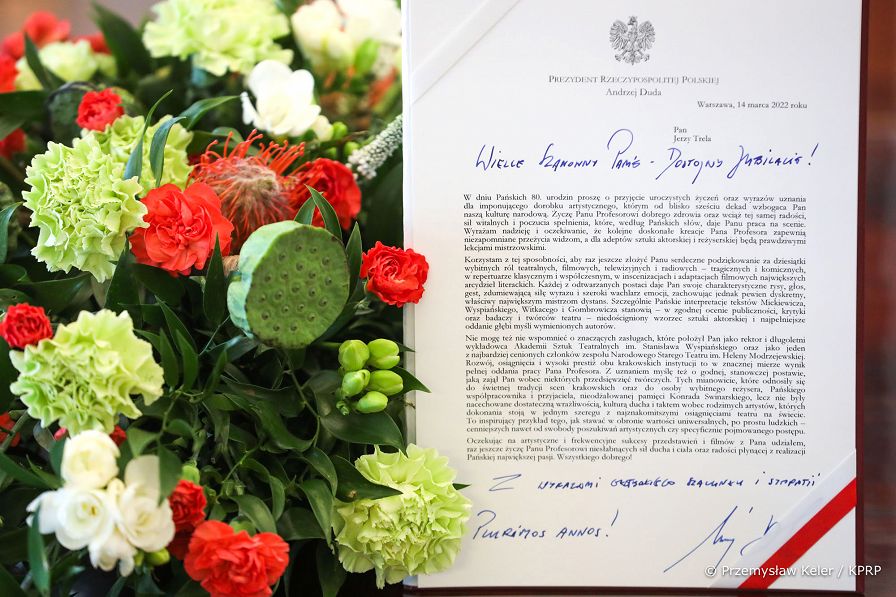 PREZYDENT RZECZYPOSPOLITEJ POLSKIEJ
Andrzej Duda
Warszawa, 14 marca 2022 roku
Pan
Jerzy Trela
WIELCE SZANOWNY PANIE - DOSTOJNY JUBILACIE!
W dniu Pańskich 80. urodzin proszę o przyjęcie uroczystych życzeń oraz wyrazów uznania
dla imponującego dorobku artystycznego, którym od blisko sześciu dekad wzbogaca Pan
naszą kulturę narodową. Życzę Panu Profesorowi dobrego zdrowia oraz wciąż tej samej radości,
sił witalnych i poczucia spełnienia, które, według Pańskich słów, daje Panu praca na scenie.
Wyrażam nadzieję i oczekiwanie, że kolejne doskonałe kreacje Pana Profesora zapewnią
niezapomniane przeżycia widzom, a dla adeptów sztuki aktorskiej i reżyserskiej będą prawdziwymi
lekcjami mistrzowskimi.
Korzystam z tej sposobności, aby raz jeszcze złożyć Panu serdeczne podziękowanie za dziesiątki
wybitnych ról teatralnych, filmowych, telewizyjnych i radiowych – tragicznych i komicznych,
w repertuarze klasycznym i współczesnym, w inscenizacjach i adaptacjach filmowych największych
arcydzieł literackich. Każdej z odtwarzanych postaci daje Pan swoje charakterystyczne rysy, głos,
gest, zdumiewającą siłę wyrazu i szeroki wachlarz emocji, zachowując jednak pewien dyskretny,
właściwy największym mistrzom dystans. Szczególnie Pańskie interpretacje tekstów Mickiewicza,
Wyspiańskiego, Witkacego i Gombrowicza stanowią – w zgodnej ocenie publiczności, krytyki
oraz badaczy i twórców teatru – niedościgniony wzorzec sztuki aktorskiej i najpełniejsze
oddanie głębi myśli wymienionych autorów.
Nie mogę też nie wspomnieć o znaczących zasługach, które położył Pan jako rektor i długoletni
wykładowca Akademii Sztuk Teatralnych im. Stanisława Wyspiańskiego oraz jako jeden
z najbardziej cenionych członków zespołu Narodowego Starego Teatru im. Heleny Modrzejewskiej.
Rozwój, osiągnięcia i wysoki prestiż obu krakowskich instytucji to w znacznej mierze wynik
pełnej oddania pracy Pana Profesora. Z uznaniem myślę też o godnej, stanowczej postawie,
jaką zajął Pan wobec niektórych przedsięwzięć twórczych. Tych mianowicie, które odnosiły się
do świetnej tradycji scen krakowskich oraz do osoby wybitnego reżysera, Pańskiego
współpracownika i przyjaciela, nieodżałowanej pamięci Konrada Swinarskiego, lecz nie były
nacechowane dostateczną wrażliwością, kulturą ducha i taktem wobec rodzimych artystów, których
dokonania stoją w jednym szeregu z najznakomitszymi osiągnięciami teatru na świecie.
To inspirujący przykład tego, jak stawać w obronie wartości uniwersalnych, po prostu ludzkich –
cenniejszych nawet od swobody poszukiwań artystycznych czy specyficznie pojmowanego postępu.
Oczekując na artystyczne i frekwencyjne sukcesy przedstawień i filmów z Pana udziałem,
raz jeszcze życzę Panu Profesorowi niesłabnących sił ducha i ciała oraz radości płynącej z realizacji
Pańskiej największej pasji. Wszystkiego dobrego!
Z WYRAZAMI GŁĘBOKIEGO SZACUNKU I SYMPATII
PLURIMOS ANNOS!
© Przemysław Keler / KPRP